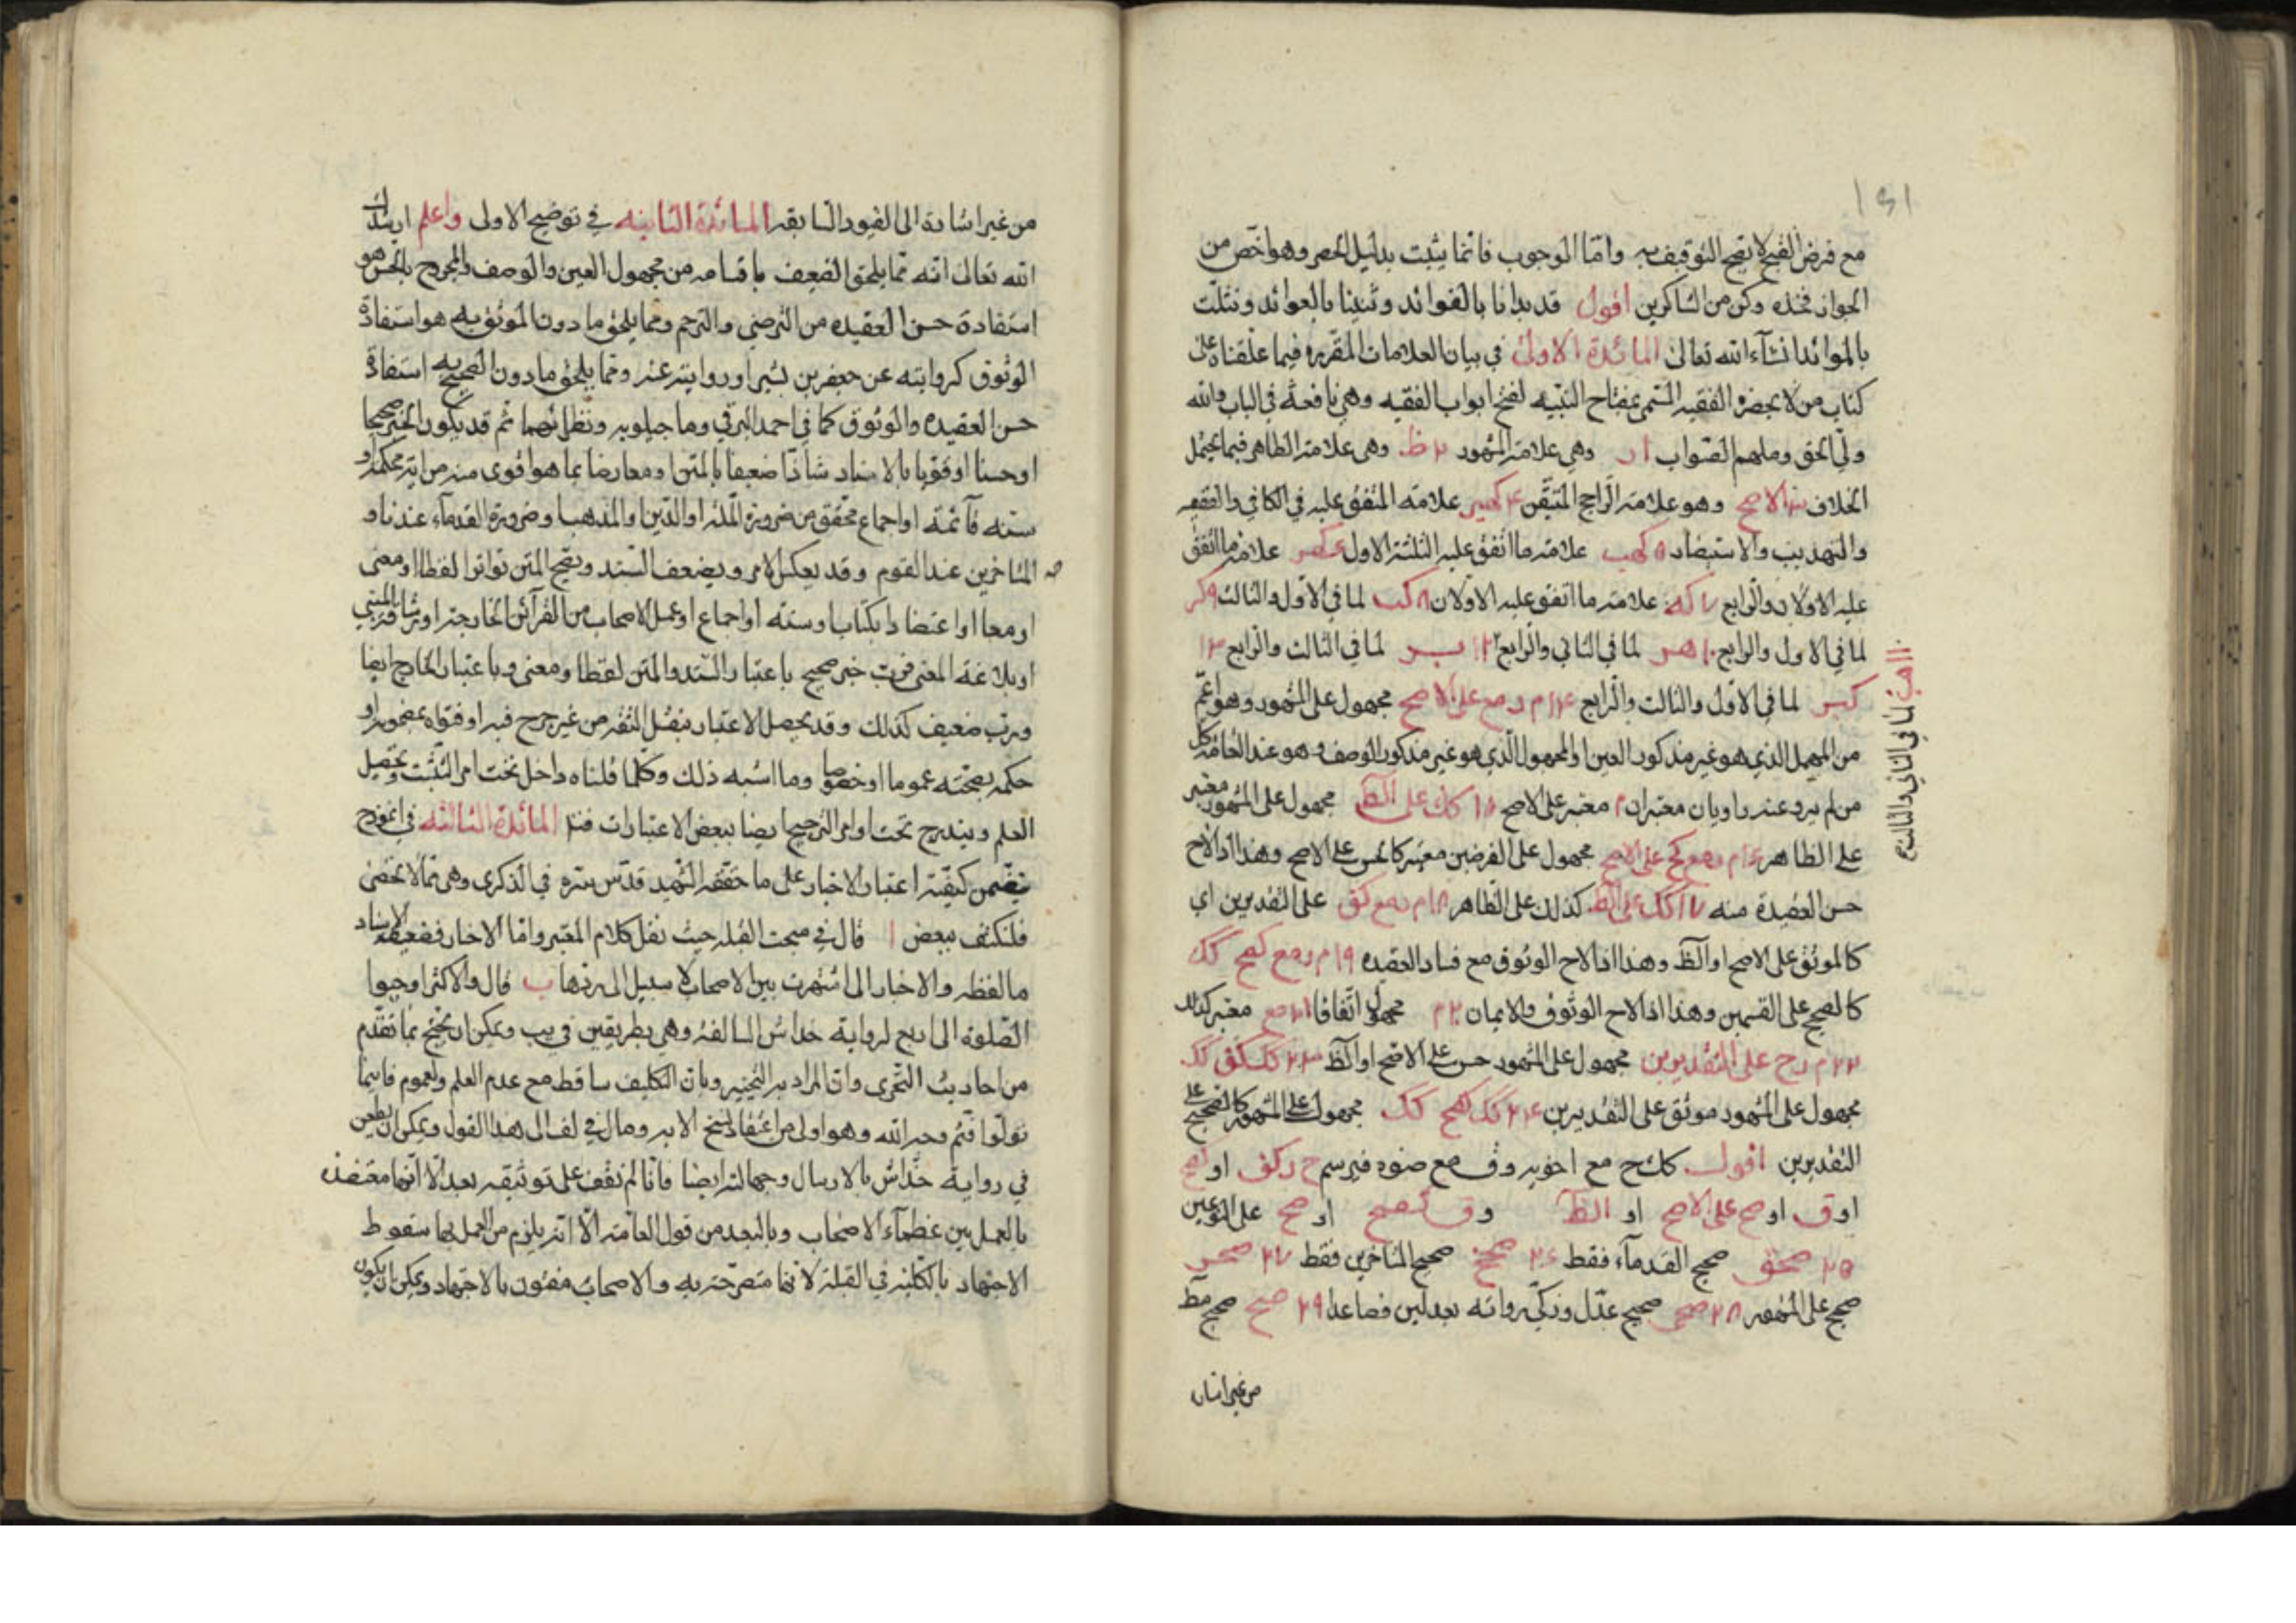 مع فرض القبح لا يقبح التوقيف به واما الوجوب فانما يثبت بدليل الحصر وهو اخص من
الجواز فخذه وكن من الشاكرين اقول قد بدانا بالفوائد وثنينا بالعوائد ونثلث
بالموائد انشآء الله تعالى المائدة الاولى في بيان العلامات المقررة فيما علقناه على
كتاب من لا يحضره الفقيه المسمى بمفتاح التنبيه لفتح ابواب الفقيه وهي نافعة في الباب والله
ولي الحق وملهم الصواب ا ر وهي علامة المشهور ٢ ظ وهي علامة الظاهر فيما يحتمل
الخلاف ٣ الاصح وهو علامة الراجح المتيقن ٤ علامة المتفق عليه في الكافي والفقيه
والتهذيب والاستبصار ٥ كهب علامة ما اتفق عليه الثلثة الاول علامة ما اتفق
عليه الاولان والرابع ٧ كه علامة ما اتفق عليه الاولان ٨ كب لما في الاول والثالث ٩ كر
لما في الاول والرابع ١٠ هر لما في الثاني والرابع ١٢ بسر لما في الثالث والرابع ١٣
كبسر لما في الاول والثالث والرابع ١٤ م ر مع على الاصح مجهول على المشهور وهو اعم
من المهمل الذي هو غير مذكور العين او المجهول الذي هو غير مذكور الوصف وهو عند العامة كل
من لم يرو عنه راويان معتبران معتبر على الاصح ١٥ كك على الظ مجهول على المشهور معتبر
على الظاهر ١٦ م رمع كح على الاصح مجهول على الفرضين معتبر كالحسن على الاصح وهذا اذا لاح
حسن العقيدة منه ١٧ كك على الظ كذلك على الظاهر ١٨ م رمع كق على التقديرين اي
كالموثق على الاصح او الظ وهذا اذا لاح الوثوق مع فساد العقيده ١٩ م رمع كصح كك
كالصحيح على القسمين وهذا اذا لاح الوثوق والايمان ٢٠ م مجهول اتفاقا ٢١ مع معتبر كذلك
٢٢ م رح على التقديرين مجهول على المشهور حسن على الاصح او الظ ٢٣ كك كق كك
مجهول على المشهور موثق على التقديرين ٢٤ كك كصح كك مجهول على المشهور كالصحيح على
التقديرين اقول كك ح مع اخويه وق مع صنوه فيرسم ح ر كق او كصح
اوق او صح على الاصح او الظ وق كصح او صح على النوعين
٢٥ صحق صحيح القدمآء فقط ٢٦ صحخ صحيح المتاخرين فقط ٢٧ صحر
صحيح على المشهور ٢٨ صحيح عدل وزكي رواته بعدلين فصاعدا ٢٩ صح صحيح مط
من غير اشارة
١١ هب لما في الثاني والثالث
من غير اشارة الى القيود السابقه المائدة الثانيه في توضيح الاولى واعلم ارشدك
الله تعالى انه مما يلحق الضعيف باقسامه من مجهول العين والوصف والمجروح بالحسن هو
استفادة حسن العقيده من الترضي والترحم ومما يلحق ما دون الموثق به هو استفادة
الوثوق كروايته عن جعفر بن بشير او روايته عنه ومما يلحق ما دون الصحيح به استفادة
حسن العقيده والوثوق كما في احمد البرقي وماجيلويه ونظرائهما ثم قد يكون الخبر صحيحا
او حسنا او قويا بالاسناد شاذا ضعيفا بالمتن او معارضا بما هو اقوى منه من اية محكمة او
سنه قآئمة او اجماع محقق من ضرورة الملة او الدين او المذهب او ضرورة القدمآء عندنا و
المتاخرين عند القوم وقد يعكس الامر ويضعف السند ويصح المتن تواترا لفظا او معنى
او معا او اعتضادا بكتاب او سنه او اجماع او عمل الاصحاب من القرآئن الخارجة او
او بلاغة المعنى فرب خبر صحيح باعتبار السند والمتن لفظا ومعنى وباعتبار الخارج ايضا
ورب ضعيف كذلك وقد يحصل الاعتبار بنقل الثقة من غير جرح فيه او فتواه بمضمونه او
حكمه بصحته عموما او خصوصا وما اشبه ذلك وكلما قلناه داخل تحت امر التثبت وتحصيل
العلم ويندرج تحت اوامر الترجيح ايضا ببعض الاعتبارات فتدبر المائدة الثالثه في انموذج
يتضمن كيفية اعتبار الاخبار على ما حققه الشهيد قدس سره في الذكرى وهي مما لا تحصى
فلنكتف ببعض ا قال في مبحث القبلة حيث نقل كلام المعتبر واما الاخبار فضعيفة الاسناد
ما لفظه والاخبار التي اشتهرت بين الاصحاب لا سبيل الى ردها ب قال والاكثر اوجبوا
الصلوة الى اربع لرواية خداش السالفة وهي بطريقين في يب ويمكن ان يحتج بما تقدم
من احاديث التحري وان المراد به التخيير وبان التكليف ساقط مع عدم العلم ولعموم فاينما
تولوا فثم وجه الله وهو اولى من اعتقاد نسخ الاية ومال في لف الى هذا القول ويمكن ان يطعن
في رواية خداش بالارسال وجهالته ايضا فانا لم نقف على توثيقه بعد الا انها معتضده
بالعمل بين عظمآء الاصحاب وبالبعد من قول العامة الا انه يلزم من العمل بها سقوط
الاجتهاد بالكلية في القبلة لانها مصرحة به والاصحاب مفتون بالاجتهاد ويمكن ان يكون